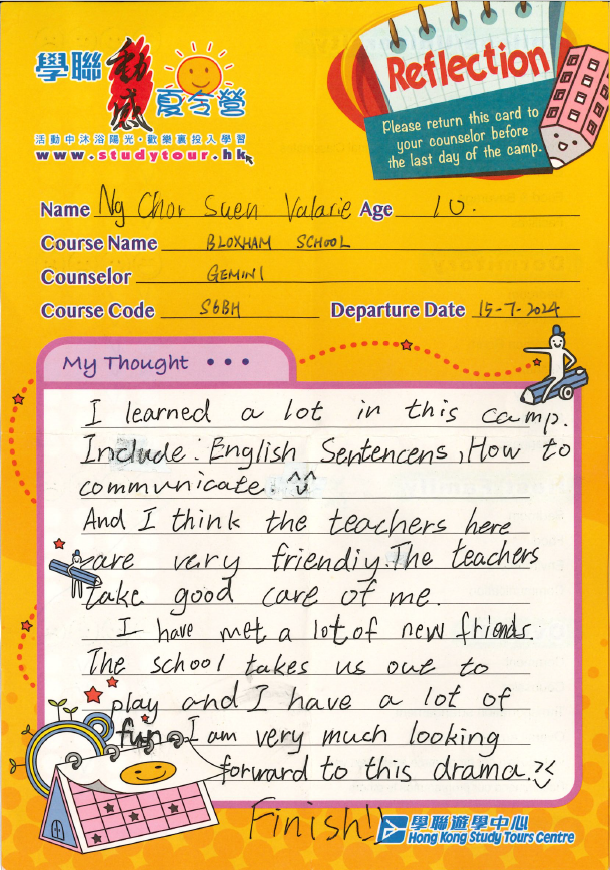 學聯 動感 夏令營
活動中沐浴陽光·歡樂裏投入學習
www.studytour.hk
Reflection
Please return this card to
your counselor before
the last day of the camp.
Name Ng Chor Suen Valarie Age 10.
Course Name BLOXHAM SCHOOL
Counselor GEMINI
Course Code S6BH Departure Date 15-7-2024
My Thought • • •
I learned a lot in this camp.
Include: English Sentencens, How to
communicate.
And I think the teachers here
are very friendiy. The teachers
take good care of me.
I have met a lot of new friends.
The school takes us out to
play and I have a lot of
fun. I am very much looking
forward to this drama.
Finish!!
學聯遊學中心
Hong Kong Study Tours Centre